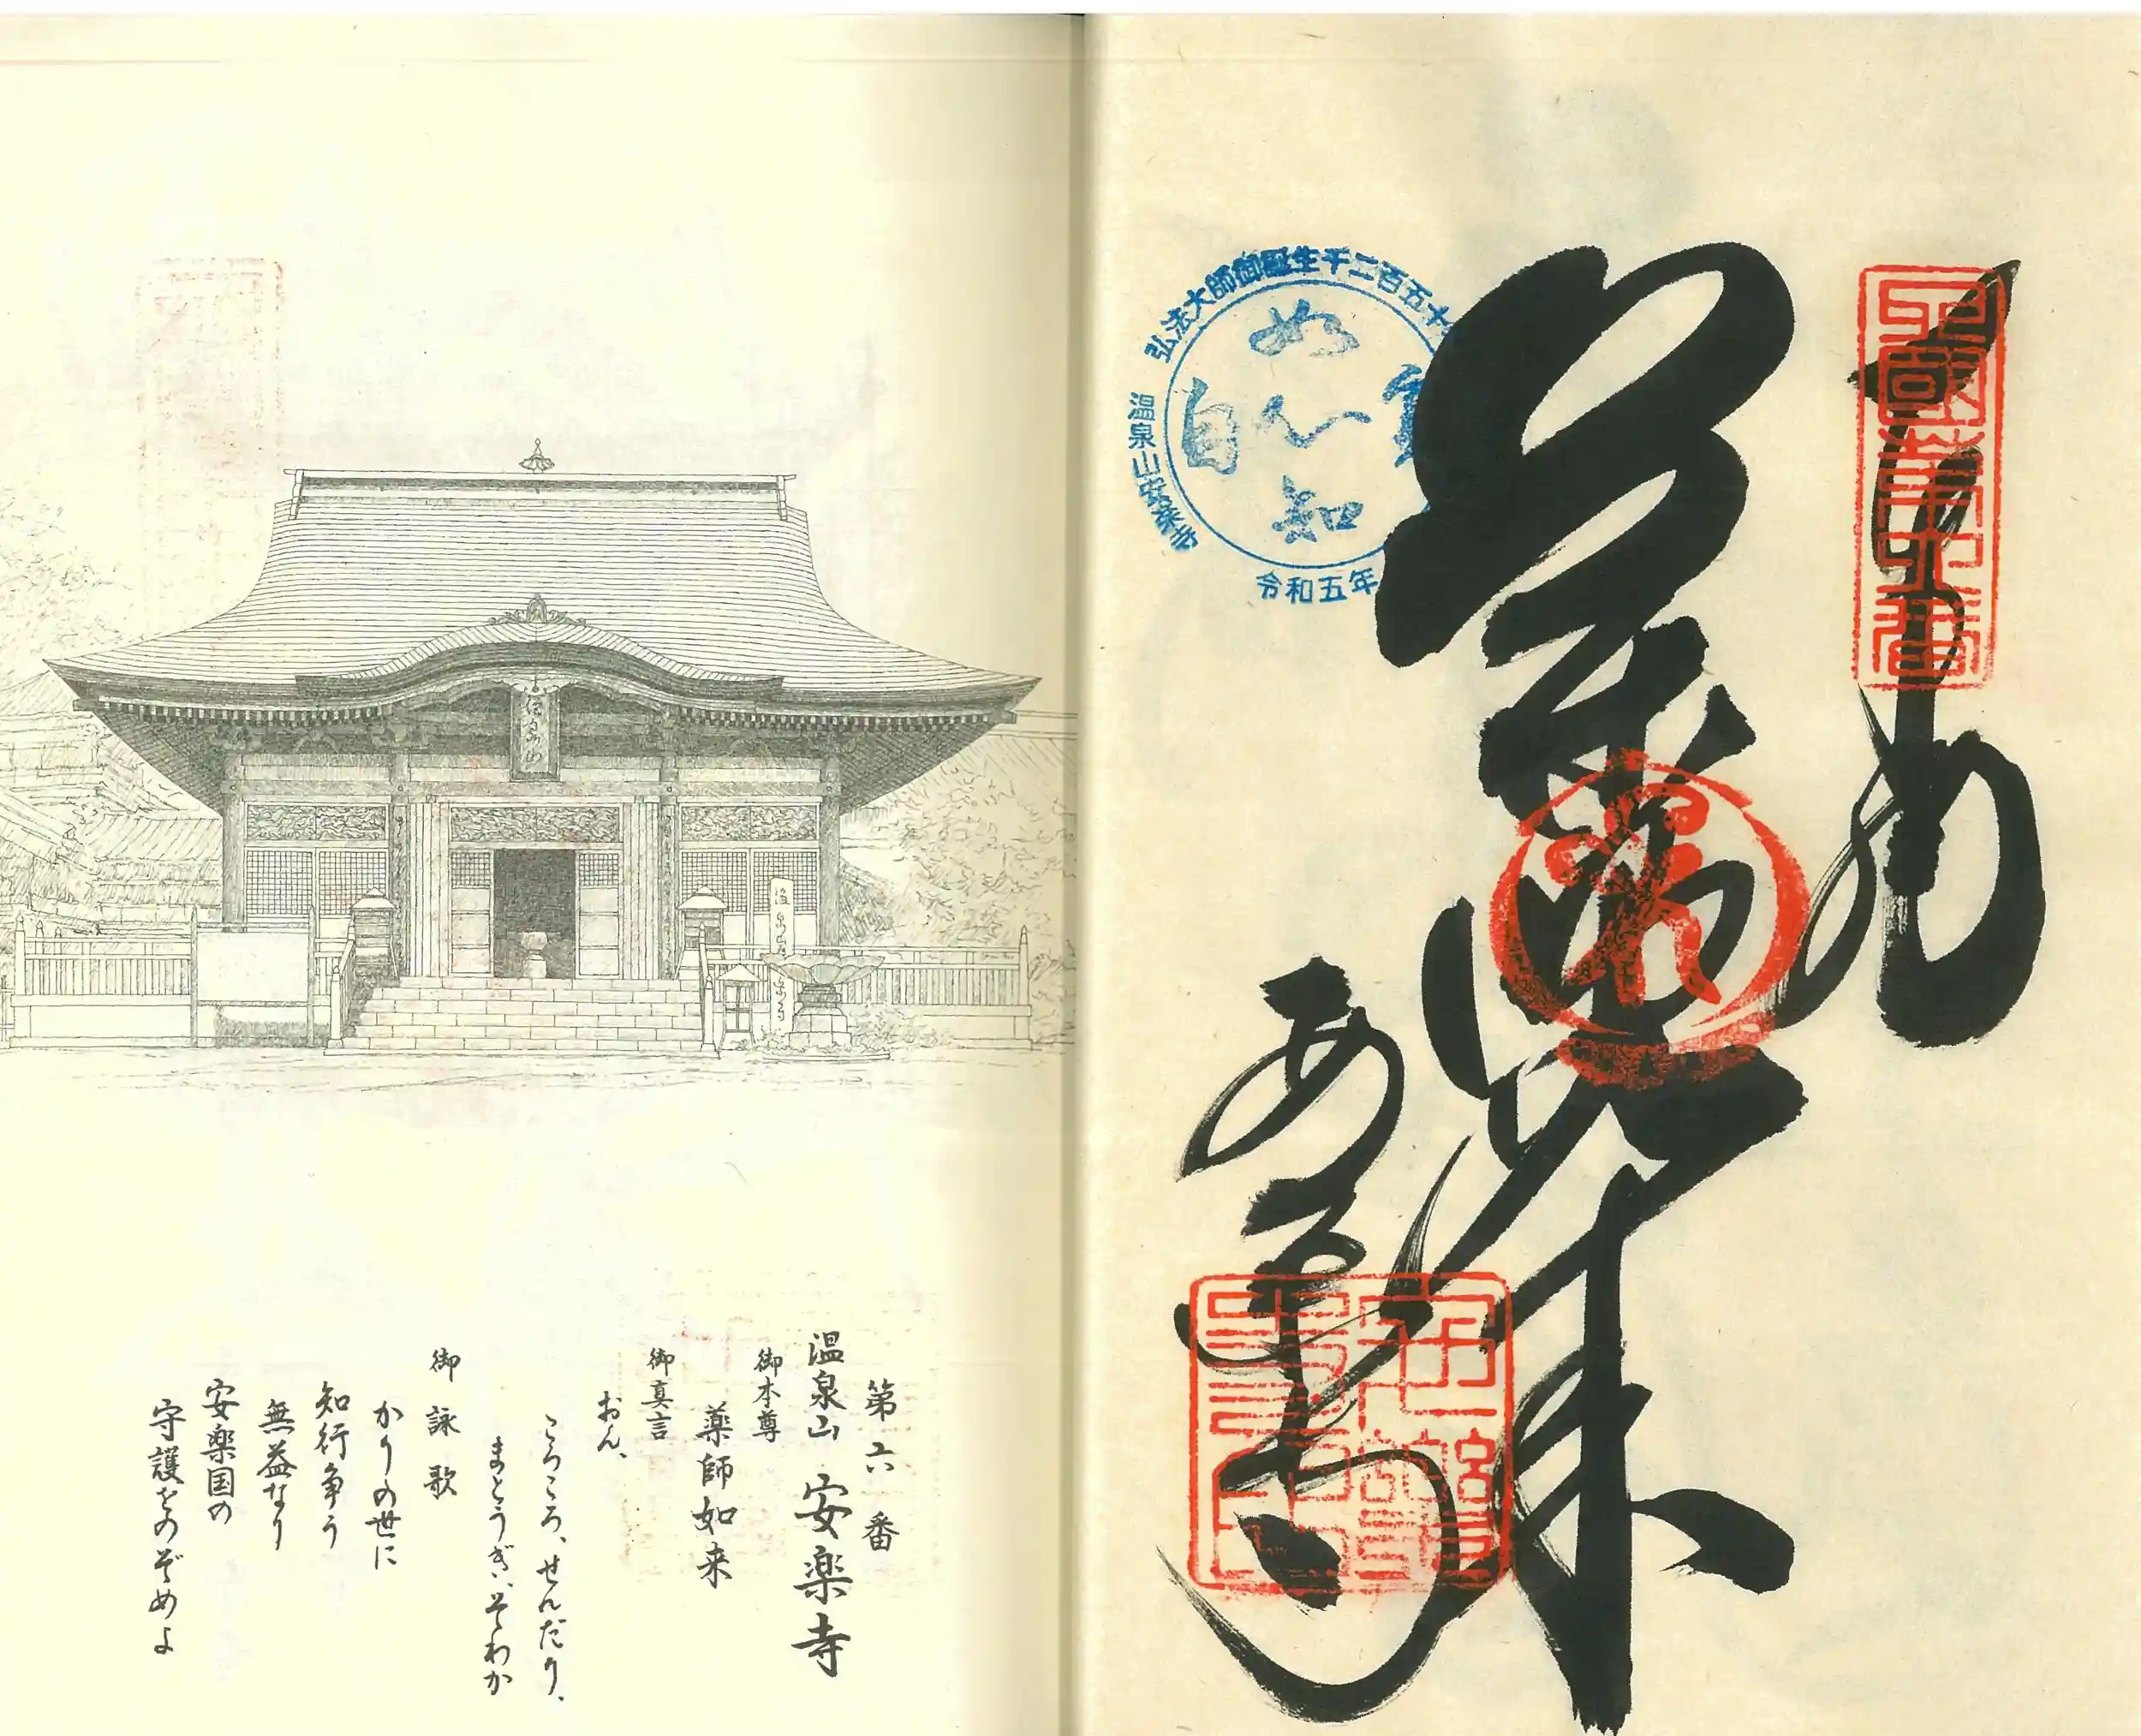 奉納
薬師如来
安楽寺
四國第六番
弘法大師御誕生千二百五十
温泉山安楽寺
令和五年
如
實
知
自
心
温泉山
第六番
温泉山 安楽寺
御本尊
薬師如来
御真言
おん、
ころころ、せんだり、
まとうぎい、そわか
御詠歌
かりの世に
知行争う
無益なり
安楽国の
守護をのぞめよ